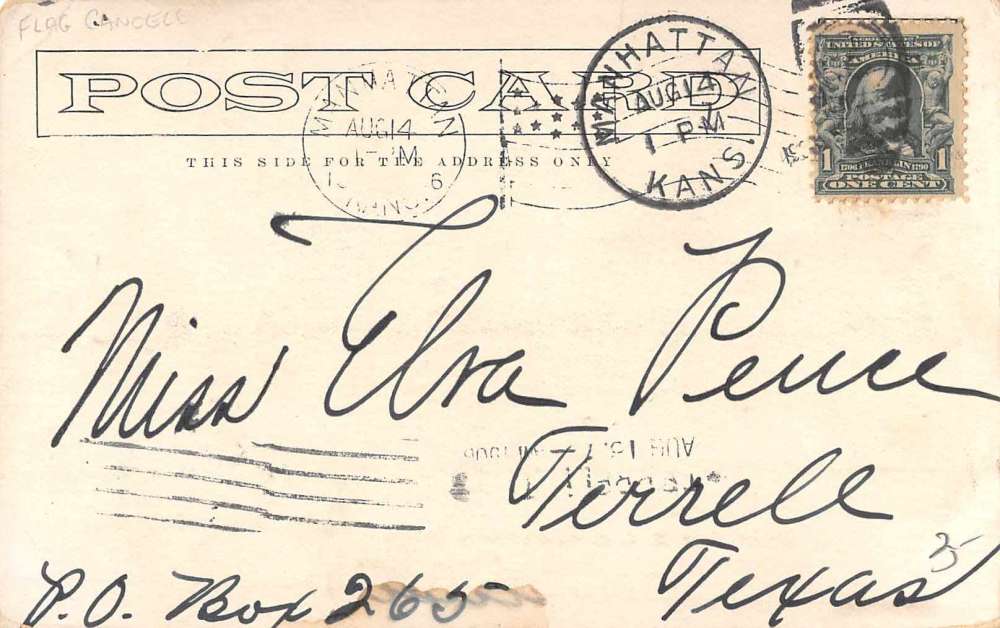 FLAG CANCELL
POST CARD
THIS SIDE FOR THE ADDRESS ONLY
AUG 14
6
MANHATTAN
AUG 14
1 PM
KANS.
SERIES
UNITED STATES OF
AMERICA
1 1706 FRANKLIN 1790 1
POSTAGE
ONE CENT
Miss Elva Pence
Terrell
Texas
P.O. Box 265
AUG 15
1906
35